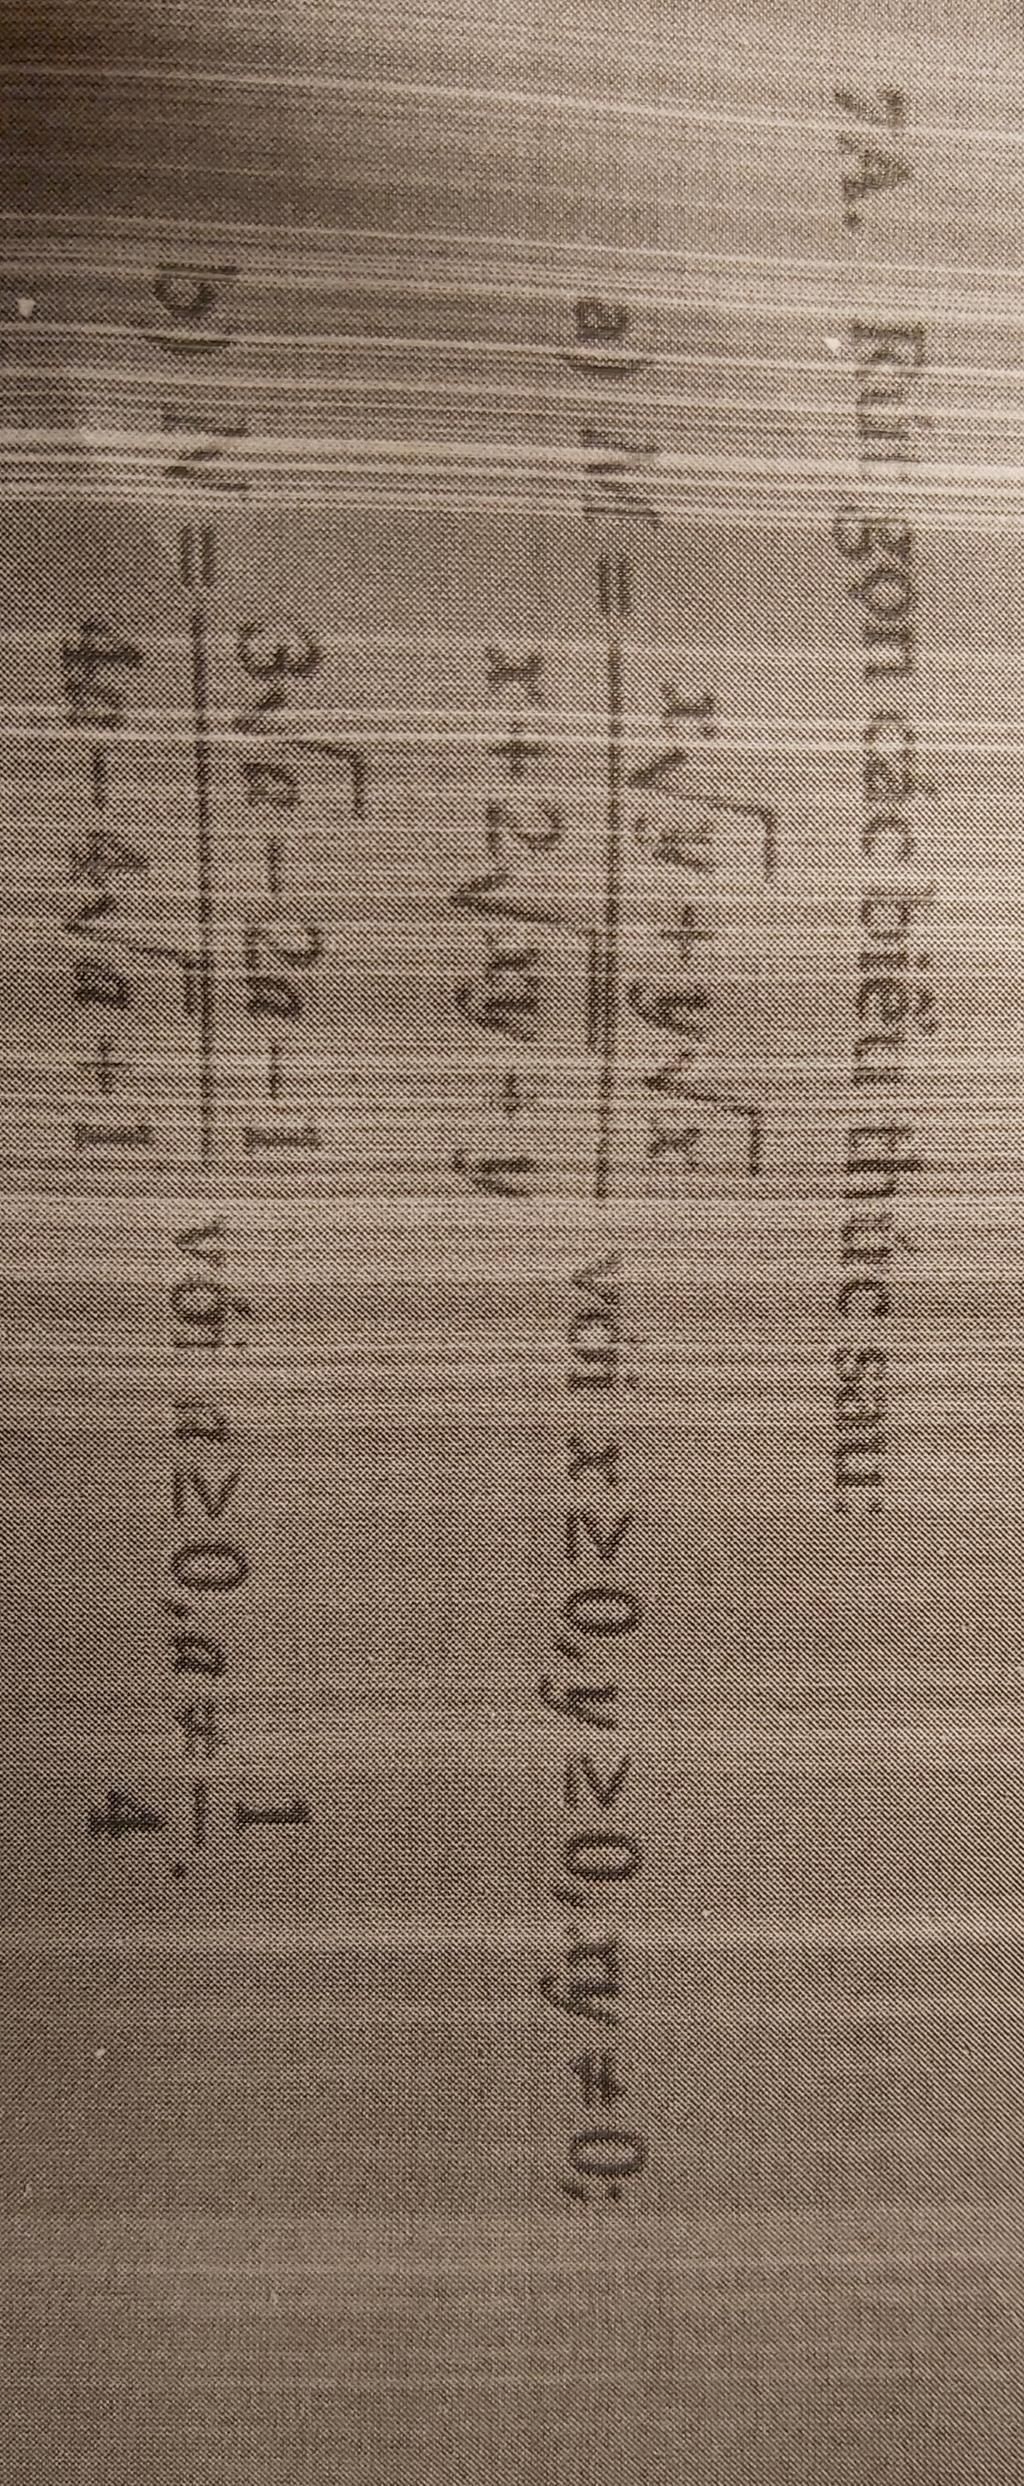 7A. Rút gọn các biểu thức sau:
a) M = \frac{x\sqrt{y} + y\sqrt{x}}{x + 2\sqrt{xy} + y} với x ≥ 0, y ≥ 0, xy ≠ 0;
b) N = \frac{3\sqrt{a} - 2a - 1}{4a - 4\sqrt{a} + 1} với a ≥ 0, a ≠ \frac{1}{4}.